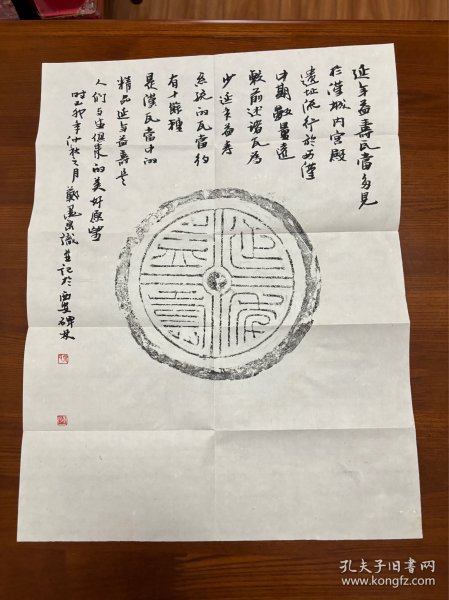 延年益壽瓦當多見
於漢城內宮殿
遺址流行於西漢
中期數量遠
較前述諸瓦為
少延年益寿
系統的瓦當約
有十幾種
是漢瓦當中的
精品延年益壽是
人们与生俱來的美好愿望
时乙卯年仲秋之月鄭墨泉識並記於西安碑林
延年益壽
孔夫子旧书网
www.kongfz.com